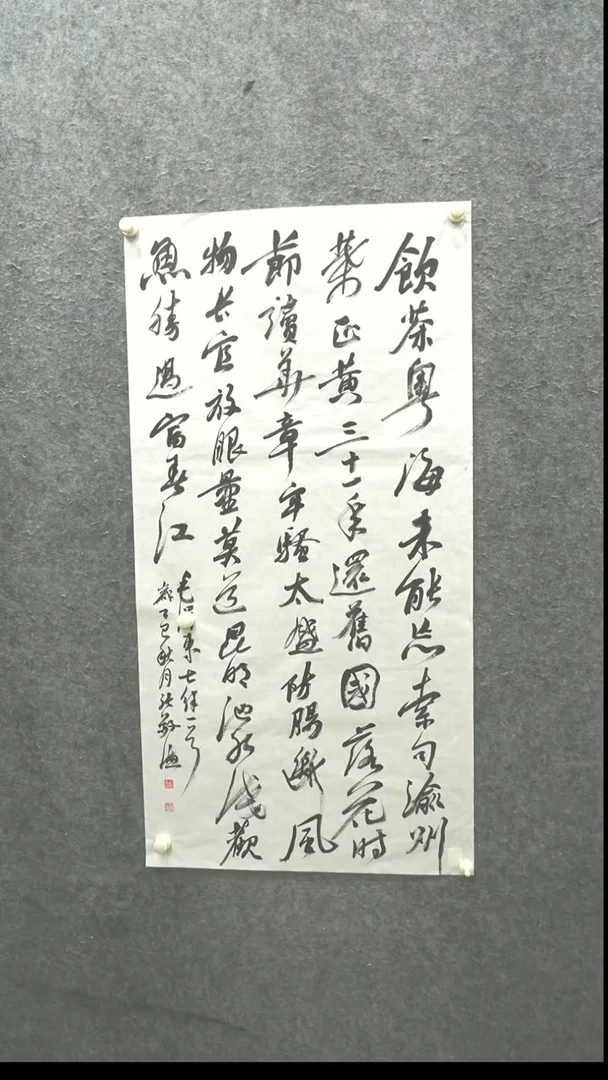 飲茶粵海未能忘索句渝州
葉正黃三十一年還舊國落花時
節讀華章牢騷太盛防腸斷風
物長宜放眼量莫道昆明池水淺觀
魚勝過富春江
毛澤東七律一首
歲 巳秋月